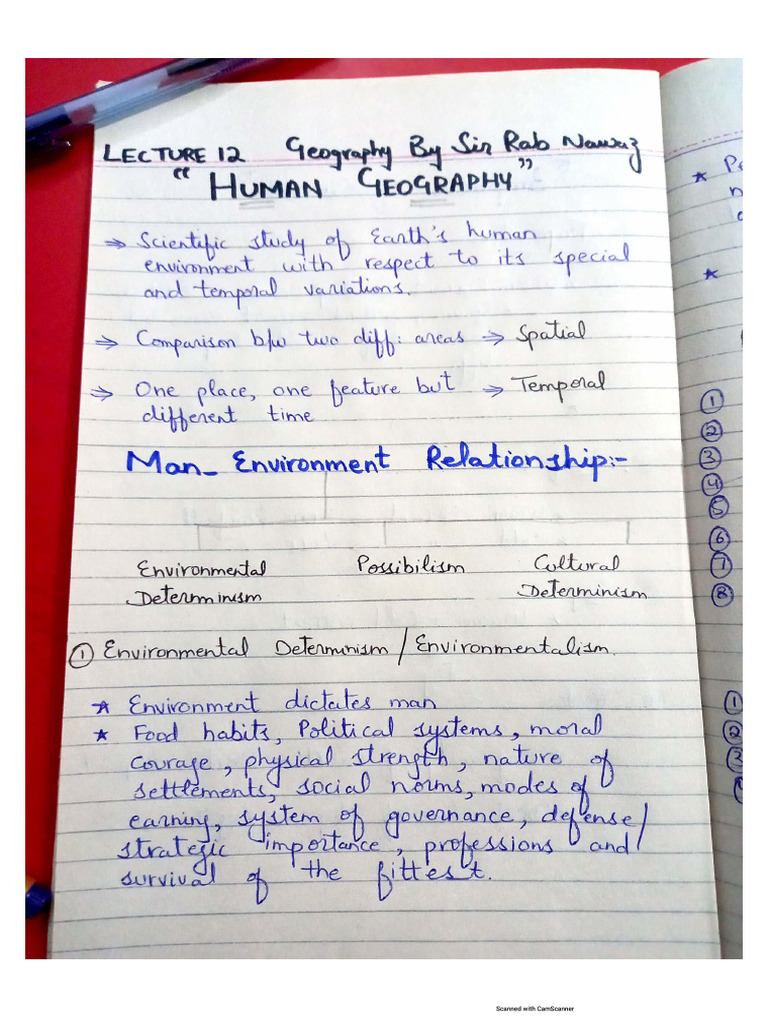 LECTURE 12 Geography By Sir Rab Nawaz
"HUMAN GEOGRAPHY"
⇒ Scientific study of Earth's human
environment with respect to its special
and temporal variations.
⇒ Comparison b/w two diff: areas ⇒ Spatial
⇒ One place, one feature but ⇒ Temporal
different time
Man_ Environment Relationship:-
Environmental Possibilism Cultural
Determinism Determinism
① Environmental Determinism / Environmentalism.
★ Environment dictates man
★ Food habits, Political systems, moral
courage, physical strength, nature of
settlements, social norms, modes of
earning, system of governance, defense/
strategic importance, professions and
survival of the fittest.
★
★
①
②
③
④
⑤
⑥
⑦
⑧
①
②
③
Scanned with CamScanner